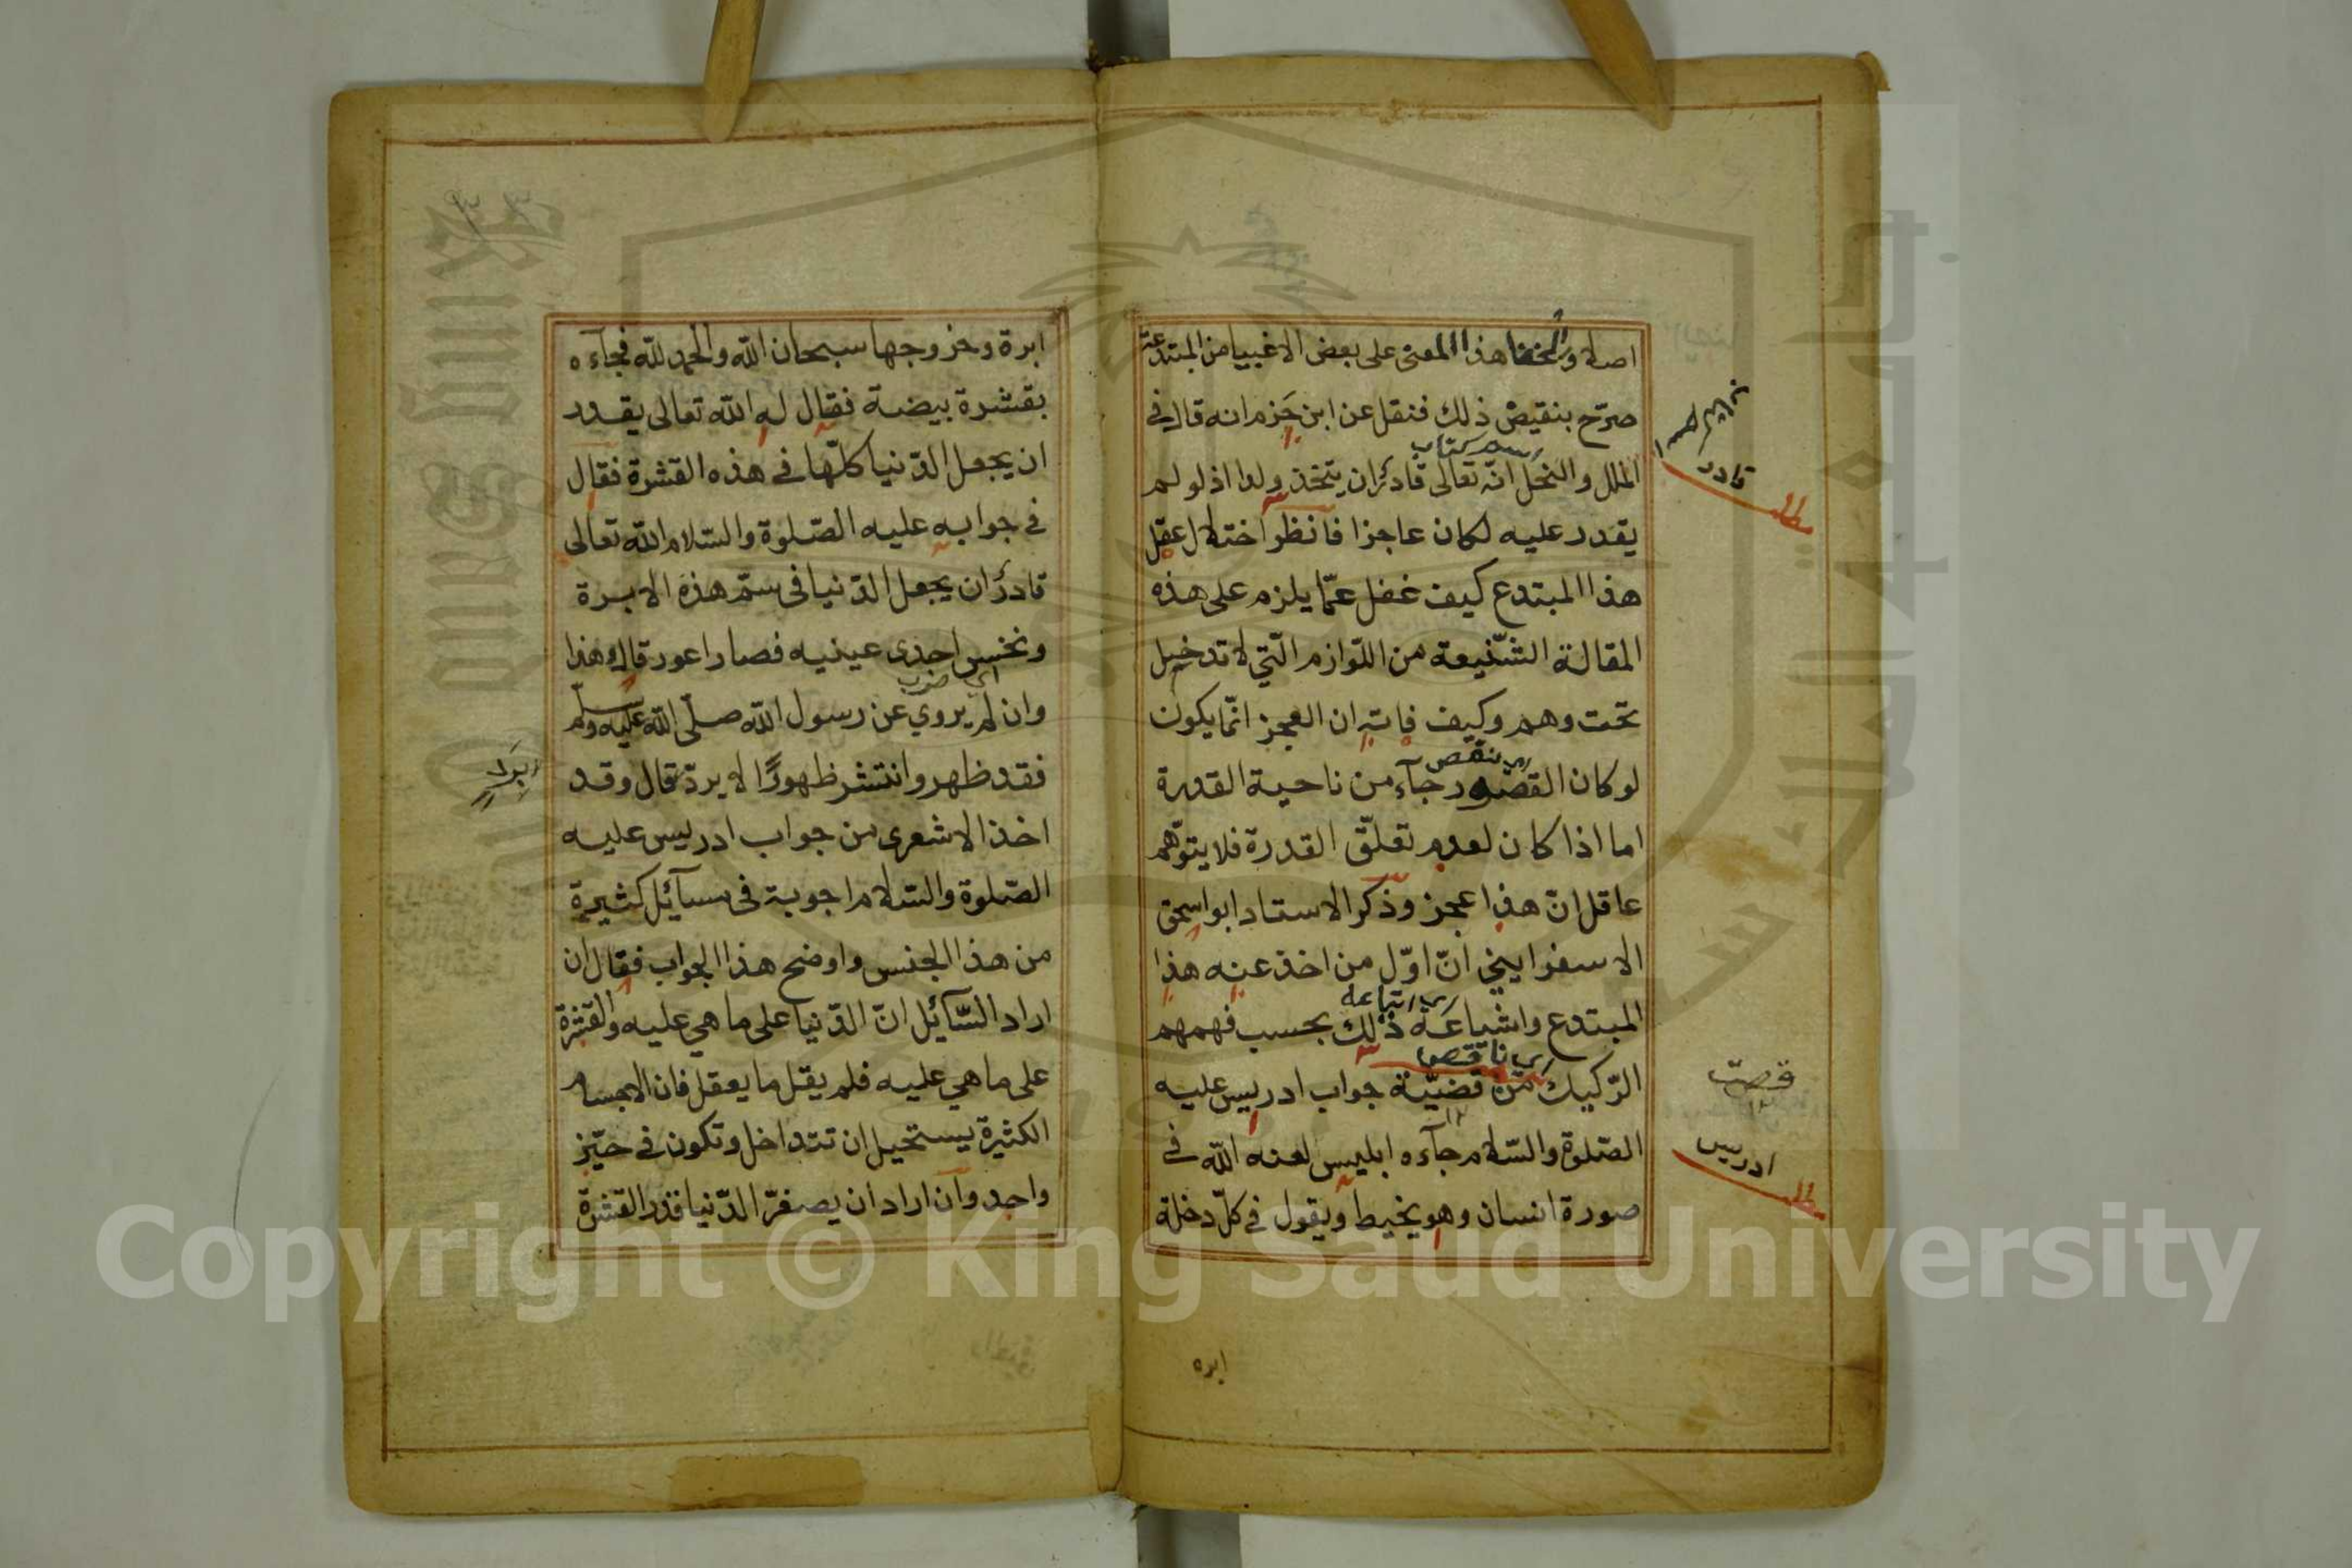 اصلا ولخفا هذا المعنى على بعض الاغبيا من المبتدعة
صرّح بنقيض ذلك فنقل عن ابن حَزم انه قال في
اسم كتاب
الملل والنحل انّه تعالى قادرٌ ان يتخذ ولدا اذ لو لم
يقدر عليه لكان عاجزا فانظر اختلال عقل
هذا المبتدع كيف غفل عمّا يلزم على هذه
المقالة الشّنيعة من اللّوازم الّتي لا تدخل
تحت وهم وكيف فاته ان العجز انّما يكون
اى نقص
لو كان القصور جآء من ناحية القدرة
اما اذا كان لعدم تعلّق القدرة فلا يتوّهم
عاقل انّ هذا عجز وذكر الاستاد ابو اسحق
الاسفراييني انّ اوّل من اخذ عنه هذا
اى اتباعه
المبتدع واشياعَه ذلك بحسب فهمهم
اى ناقص
الرّكيك من قضيّة جواب ادريس عليه
الصّلوة والسّلام جآءه ابليس لعنه اللّه في
صورة انسان وهو يخيط ويقول في كلّ دخلة
ابره
قادر
مطلب
قصت
ادريس
مطلب
ابرة وخروجها سبحان اللّه والحمد للّه فجآءه
بقشرة بيضة فقال له اللّه تعالى يقدر
ان يجعل الدّنيا كلّها في هذه القشرة فقال
في جوابه عليه الصّلوة والسّلام اللّه تعالى
قادرٌ ان يجعل الدّنيا في سمّ هذه الابرة
ونخس احدى عينيه فصار اعور قال وهذا
اى ضرب
وان لم يروي عن رسول اللّه صلّى اللّه عليه وسلّم
فقد ظهر وانتشر ظهورًا لا يردّ قال وقد
اخذ الاشعرى من جواب ادريس عليه
الصّلوة والسّلام اجوبة في مسآئل كثيرة
من هذا الجنس واوضح هذا الجواب فقال ان
اراد السّآئل انّ الدّنيا على ما هي عليه والقشرة
على ما هي عليه فلم يقل ما يعقل فان الاجسام
الكثيرة يستحيل ان تتداخل وتكون في حيّز
واحد وان اراد ان يصغّر الدّنيا قدر القشرة
Copyright © King Saud University